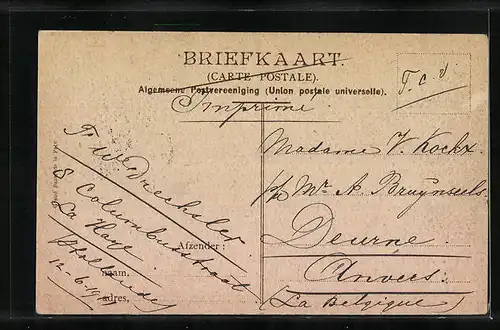 BRIEFKAART.
(CARTE POSTALE).
Algemeene Postvereeniging (Union postale universelle).
Imprimé
T. c. v.
Madame V. Kockx.
p/a Mr. A. Bruynseels
Deurne
Anvers
(La Belgique)
F. W. Drechsler
8 Columbusstraat
La Haye
Hollande
Afzender:
naam.
adres,